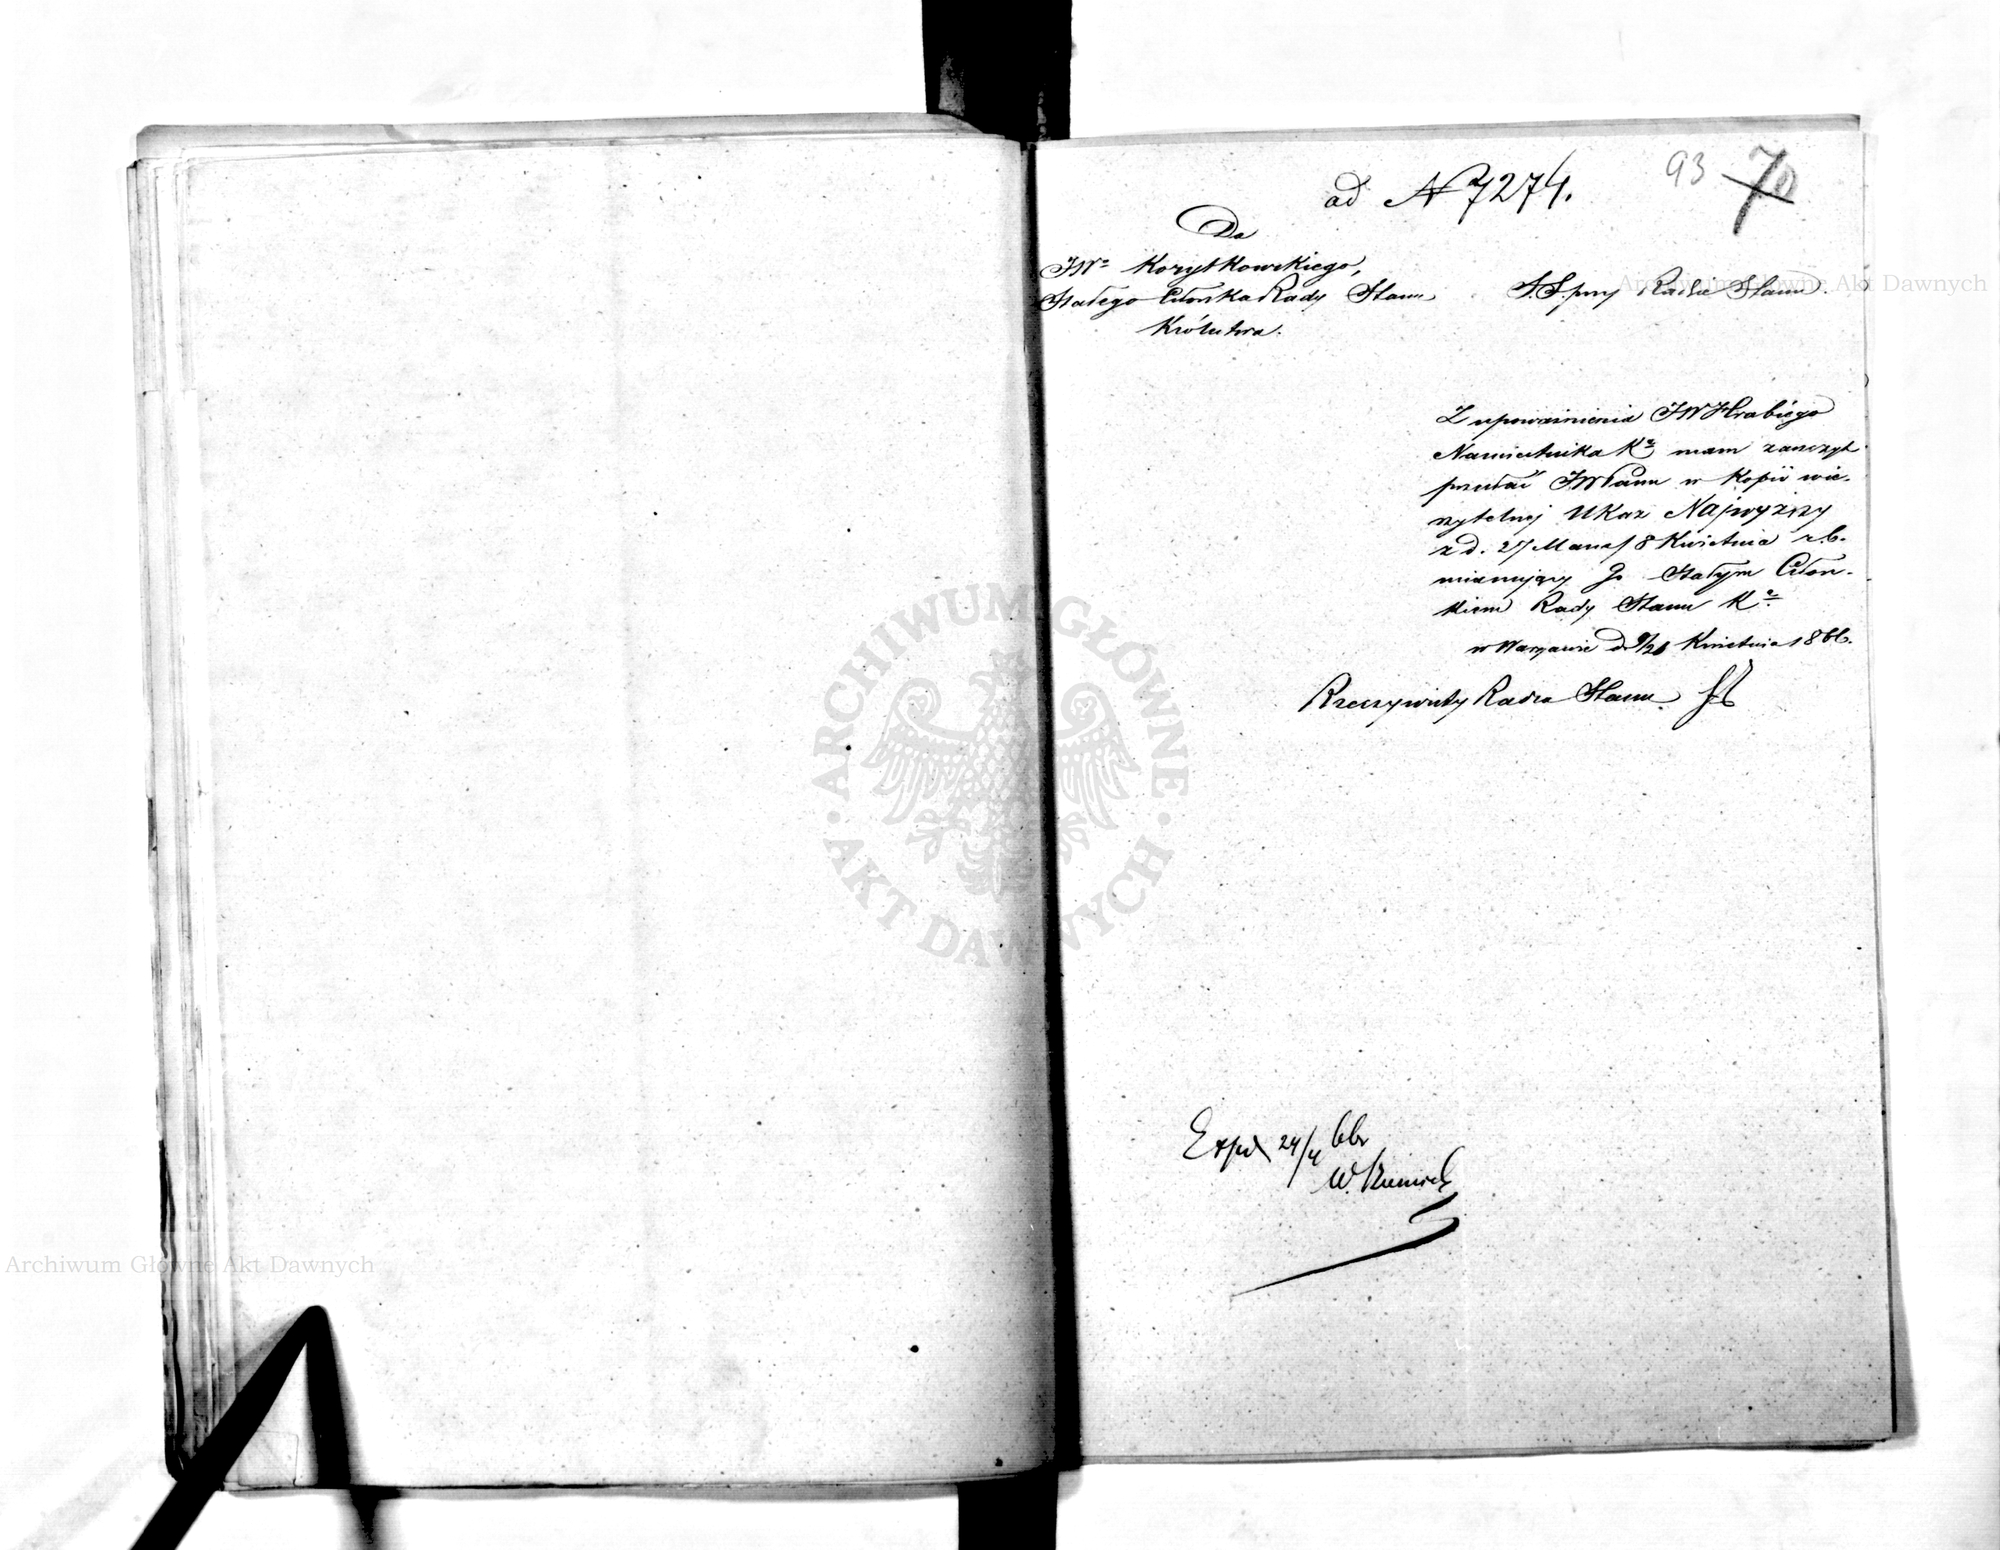 ad N 7274.
93 70
Do
JWo Korytkowskiego,
Stałego Członka Rady Stanu
Królestwa.
S.S. przy Radzie Stanu.
Z upoważnienia JW Hrabiego
Namiestnika Ka mam zaszczyt
przesłać JWPanu w Kopii wie-
rzytelnej Ukaz Najwyższy
z d. 27 Marca/8 Kwietnia r.b.
mianujący Go Stałym Człon-
kiem Rady Stanu Ka
w Warszawie d. 9/21 Kwietnia 1866.
Rzeczywisty Radca Stanu
Exped 24/4 66
W.
ARCHIWUM GŁÓWNE AKT DAWNYCH
Archiwum Główne Akt Dawnych
Archiwum Główne Akt Dawnych